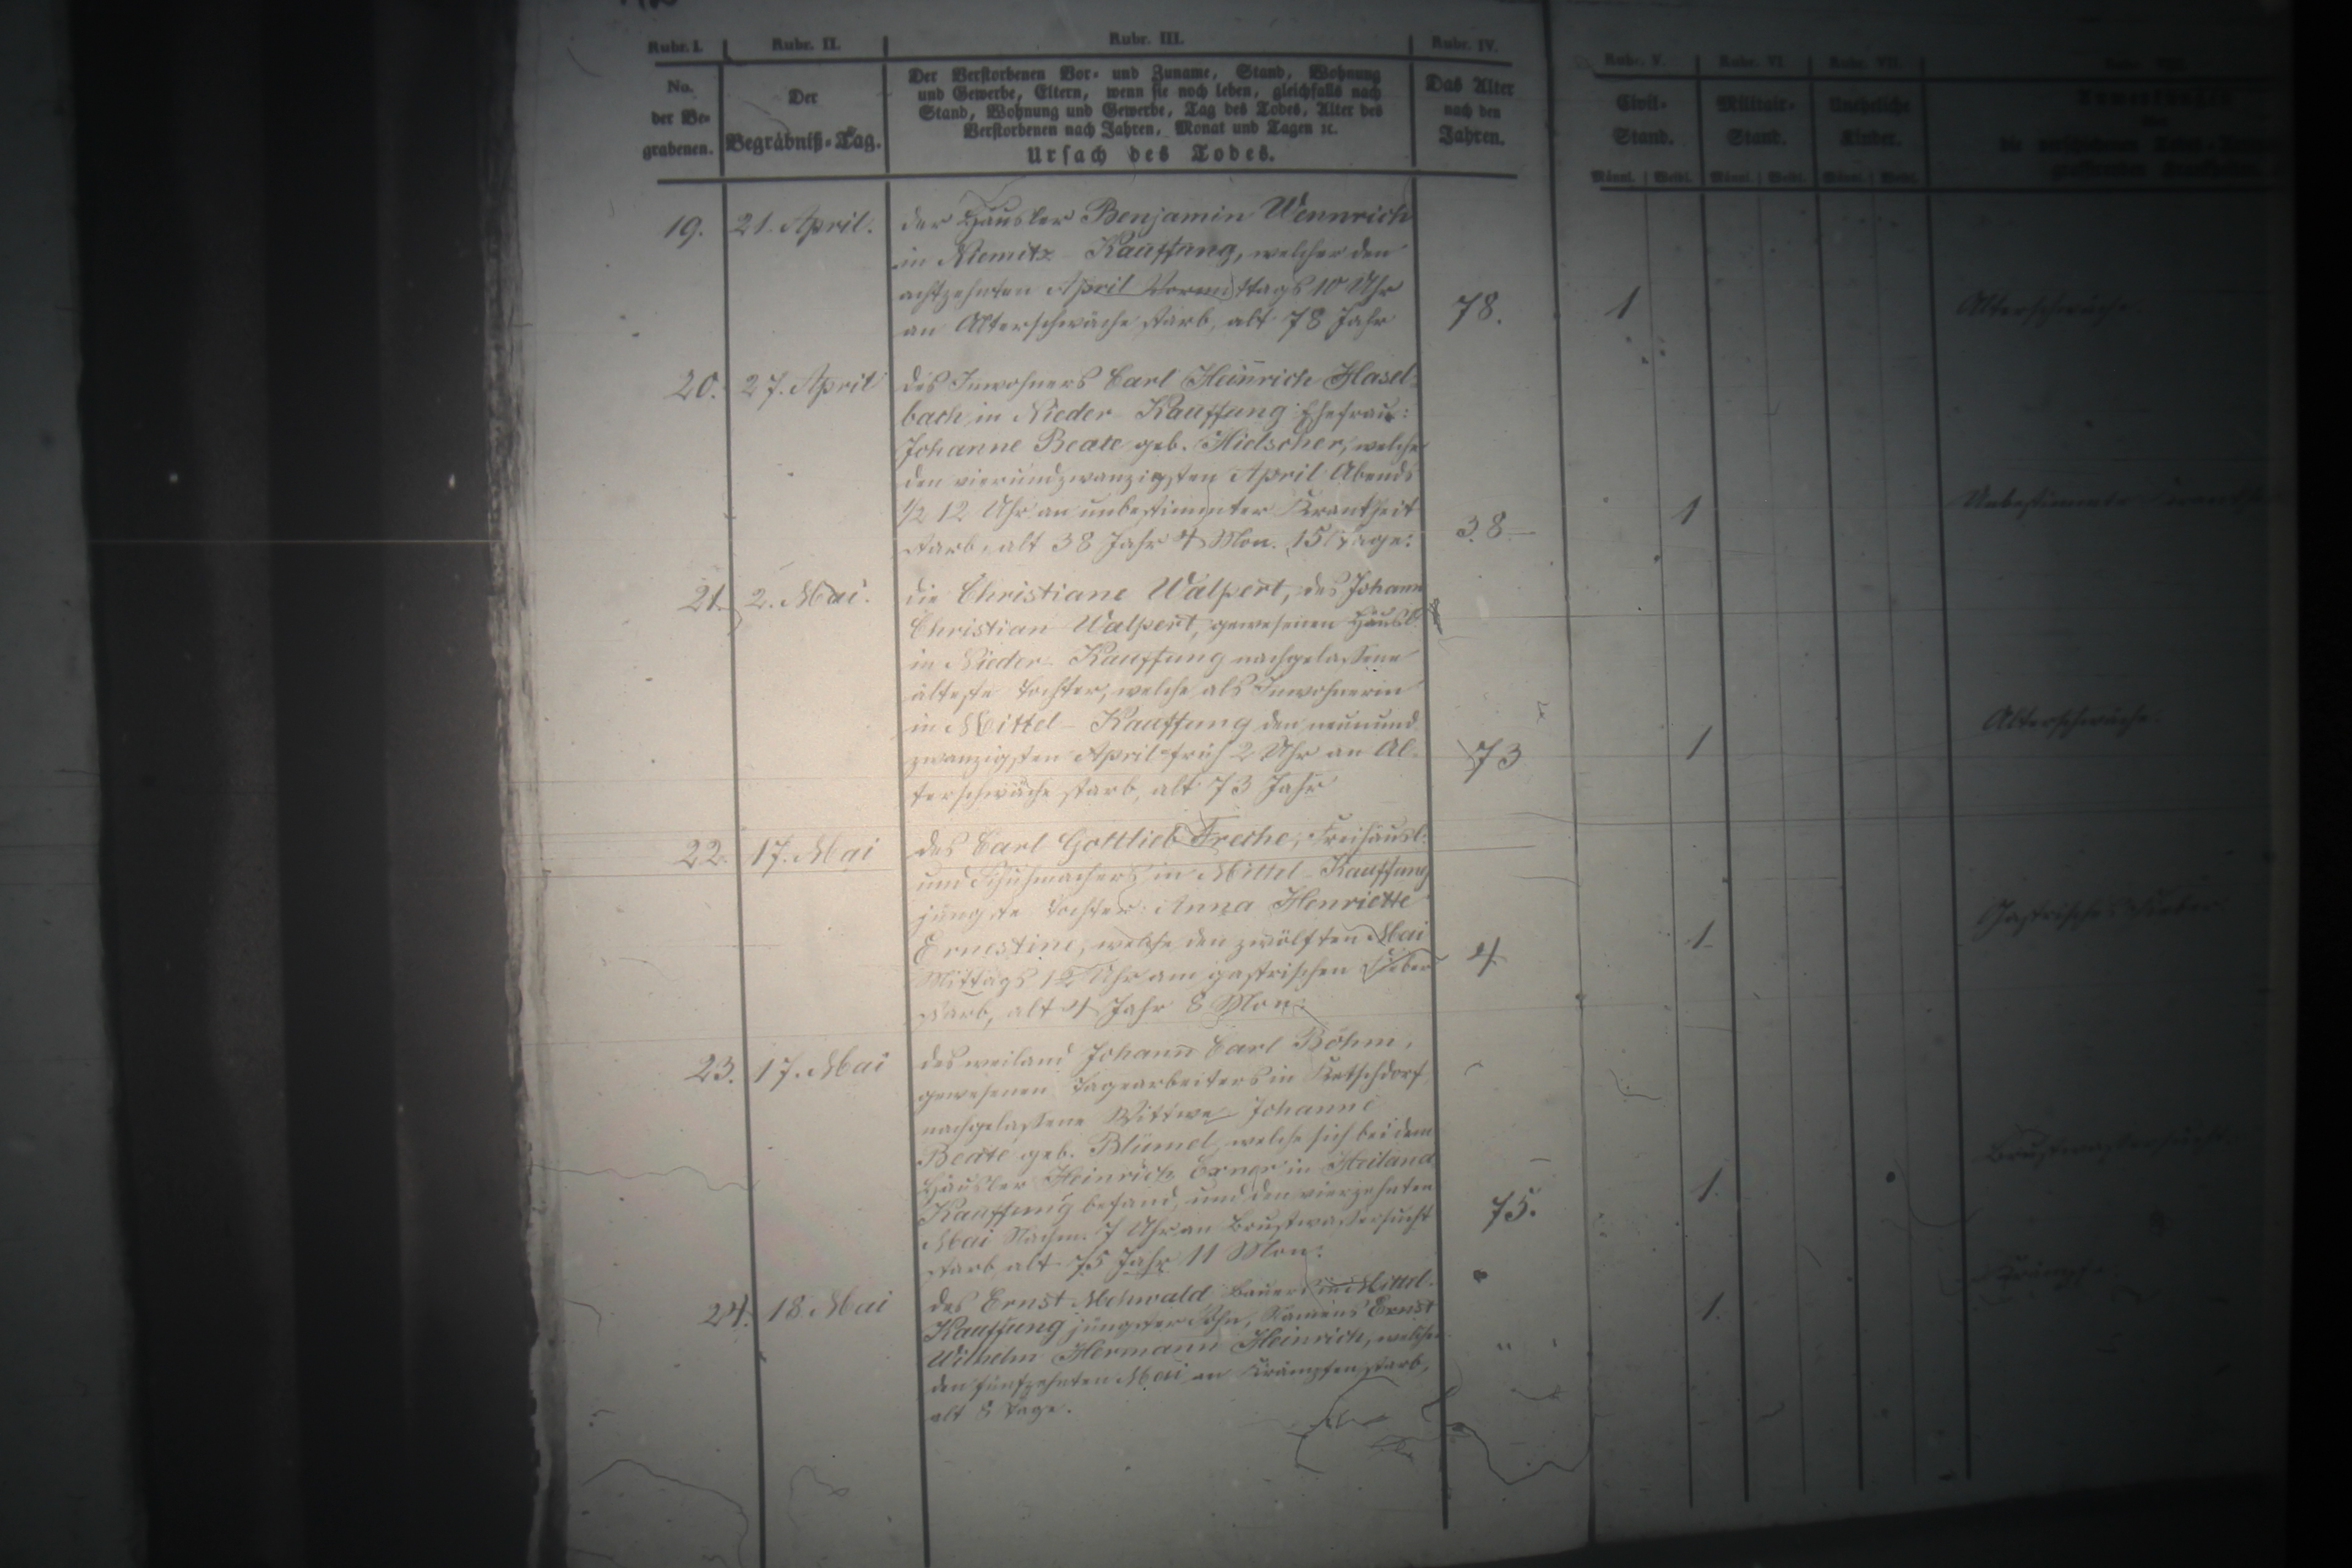 Rubr. I. Rubr. II. Rubr. III. Rubr. IV. Rubr. V. Rubr. VI Rubr. VII.
No. der Be-grabenen.
Der Begräbniß-Tag.
Der Verstorbenen Vor- und Zuname, Stand, Wohnung
und Gewerbe, Eltern, wenn sie noch leben, gleichfalls nach
Stand, Wohnung und Gewerbe, Tag des Todes, Alter des
Verstorbenen nach Jahren, Monat und Tagen ꝛc.
Ursach des Todes.
Das Alter nach den Jahren.
Civil-Stand.
Militair-Stand.
Uneheliche Kinder.
Männl. Weibl. Männl. Weibl. Männl. Weibl.
19. 21. April. der Häusler Benjamin Wennrich
in Niemitz-Kauffung, welcher den
achtzehnten April Vormittags 10 Uhr
an Alterschwäche starb, alt 78 Jahr 78. 1 Alterschwäche.
20. 27. April des Inwohners Carl Heinrich Hasel-
bach in Nieder Kauffung Ehefrau:
Johanne Beate geb. Hielscher, welche
den vierundzwanzigsten April Abends
1/2 12 Uhr an unbestimmter Krankheit 1 Unbestimmte
starb, alt 38 Jahr 4 Mon. 15 Tage. 38.
21. 2. Mai. die Christiane Walpert, des Johann
Christian Walpert, gewesenen Häusl.
in Nieder Kauffung nachgelassene
älteste Tochter, welche als Inwohnerin
in Mittel-Kauffung den neunund
zwanzigsten April früh 2 Uhr an Al- 73 1 Alterschwäche.
terschwäche starb, alt 73 Jahr
22. 17. Mai des Carl Gottlieb Freche, Freihäusl.
und Schuhmachers in Mittel-Kauffung
jüngste Tochter: Anna Henriette
Ernestine, welche den zwölften Mai 1 Gastrisches Fieber
Mittags 12 Uhr am gastrischen Fieber 4
starb, alt 4 Jahr 8 Mon.
23. 17. Mai des weiland Johann Carl Böhm,
gewesenen Tagearbeiters in Ketschdorf
nachgelassene Wittwe Johanne
Beate geb. Blümel, welche sich bei dem
Häusler Heinrich in Heiland
Kauffung befand, und den vierzehnten
Mai Nachm. 7 Uhr an Brustwassersucht 75. 1. Brustwassersucht
starb, alt 75 Jahr 11 Mon.
24. 18 Mai des Ernst Mehwald Bauers in Mittel-
Kauffung jüngster Sohn, Namens Ernst 1. Krämpfe
Wilhelm Hermann Heinrich, welcher
den fünfzehnten Mai an Krämpfen starb,
alt 8 Tage.